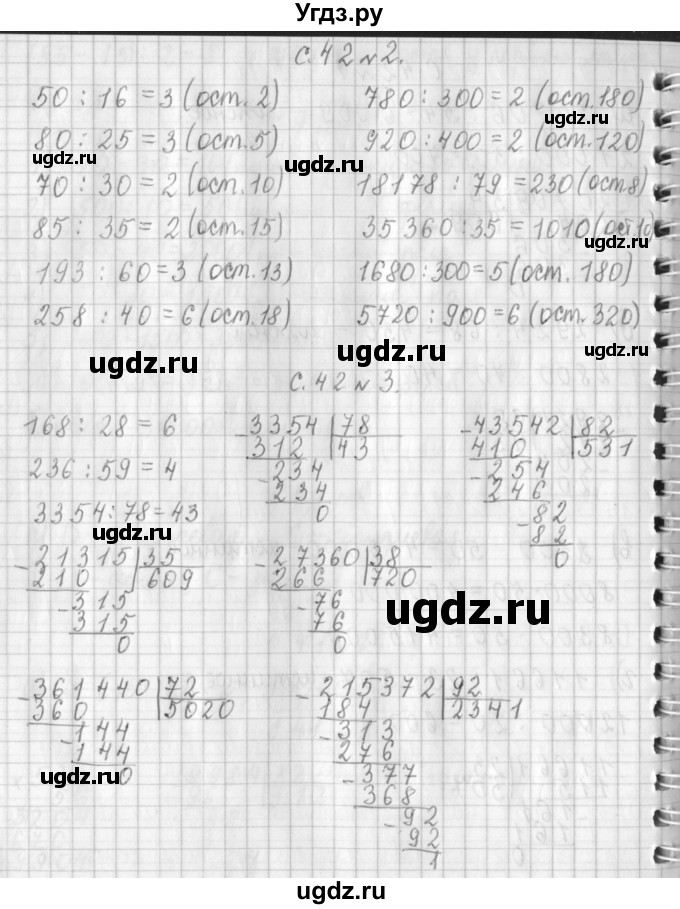 Угдз.ру
с. 42 №2.
50 : 16 = 3 (ост. 2)
780 : 300 = 2 (ост. 180)
ugdz.ru
80 : 25 = 3 (ост. 5)
920 : 400 = 2 (ост. 120)
ugdz.ru
ugdz.ru
ugdz.ru
70 : 30 = 2 (ост. 10)
18178 : 79 = 230 (ост 8)
85 : 35 = 2 (ост. 15)
35 360 : 35 = 1010 (ост 10)
ugdz.ru
193 : 60 = 3 (ост. 13)
1680 : 300 = 5 (ост. 180)
258 : 40 = 6 (ост. 18)
5720 : 900 = 6 (ост. 320)
ugdz.ru
ugdz.ru
ugdz.ru
с. 42 № 3.
168 : 28 = 6
236 : 59 = 4
3354 : 78 = 43
ugdz.ru
- 3354 | 78
312 | 43
- 234
234
0
- 43542 | 82
410 | 531
- 254
246
- 82
82
0
- 21315 | 35
210 | 609
- 315
315
0
- 27360 | 38
266 | 720
- 76
76
0
ugdz.ru
- 361440 | 72
360 | 5020
- 144
144
0
ugdz.ru
- 215372 | 92
184 | 2341
- 313
276
- 377
368
- 92
92
1
ugdz.ru
ugdz.ru
ugdz.ru